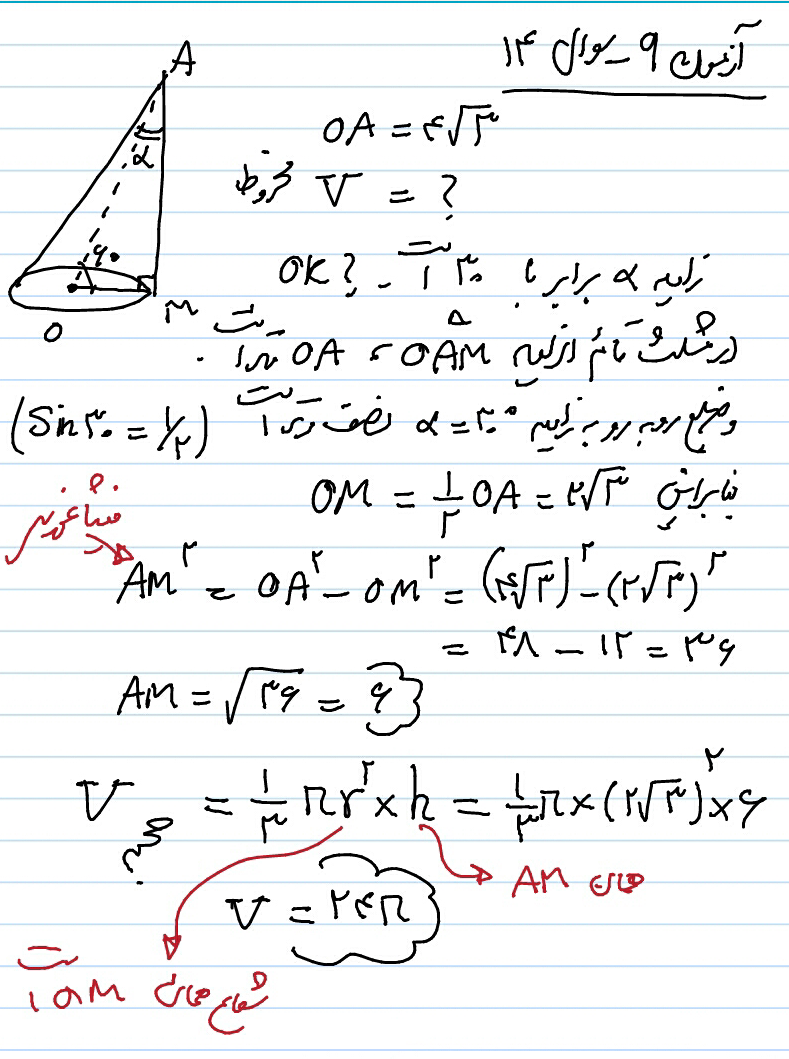 آزمون ۹ - سوال ۱۴
A
α
۶۰
O
M
OA = ۴√۳
V مخروط = ?
زاویه α برابر با ۳۰ است - OK?
در مثلث قائم الزاویه OAM، OA وتر است.
و ضلع روبه رو به زاویه α = ۳۰° نصف وتر است (Sin ۳۰ = ۱/۲)
بنابراین OM = ۱/۲ OA = ۲√۳
فیثاغورث
AM² = OA² - OM² = (۴√۳)² - (۲√۳)²
= ۴۸ - ۱۲ = ۳۶
AM = √۳۶ = ۶
V = ۱/۳ πr² × h = ۱/۳ π × (۲√۳)² × ۶
همان AM
V = ۲۴π
شعاع همان OM است